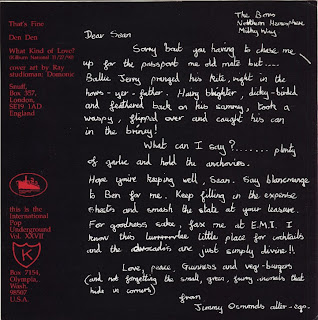 That's Fine
Den Den
What Kind of Love?
cover art by Ray
studioman; Domonic
Snuff,
Box 357,
London,
SE19 1AD
England
this is the
International
Pop
Underground
Vol. XXVII
K
Box 7154,
Olympia,
Wash.
98507
U.S.A.
The Bom
Northern Hemisphere
Milky Way
Dear Sean
Sorry bout you having to chase me
up for the passport me old mate but....
Ballie Jerry pranged his kite, right in the
hows-yer-father. Hairy blighter, dicky-birded
and feathered back on his sammy, took a
waspy, flipped over and caught his can
in the briney!
What can I say?....... plenty
of garlic and hold the anchovies.
Hope you're keeping well, Sean. Say blancmange
to Ben for me. Keep filling in the expense
sheets and smash the state at your leasure.
For goodness sake, fax me at E.M.I. I
know this little place for cocktails
and the are just simply divine!!
Love, peace, Guinness and veg-burgers
(and not forgetting the small, green, furry animals that
hide in corners)
from
Jimmy Osmonds alter-ego.